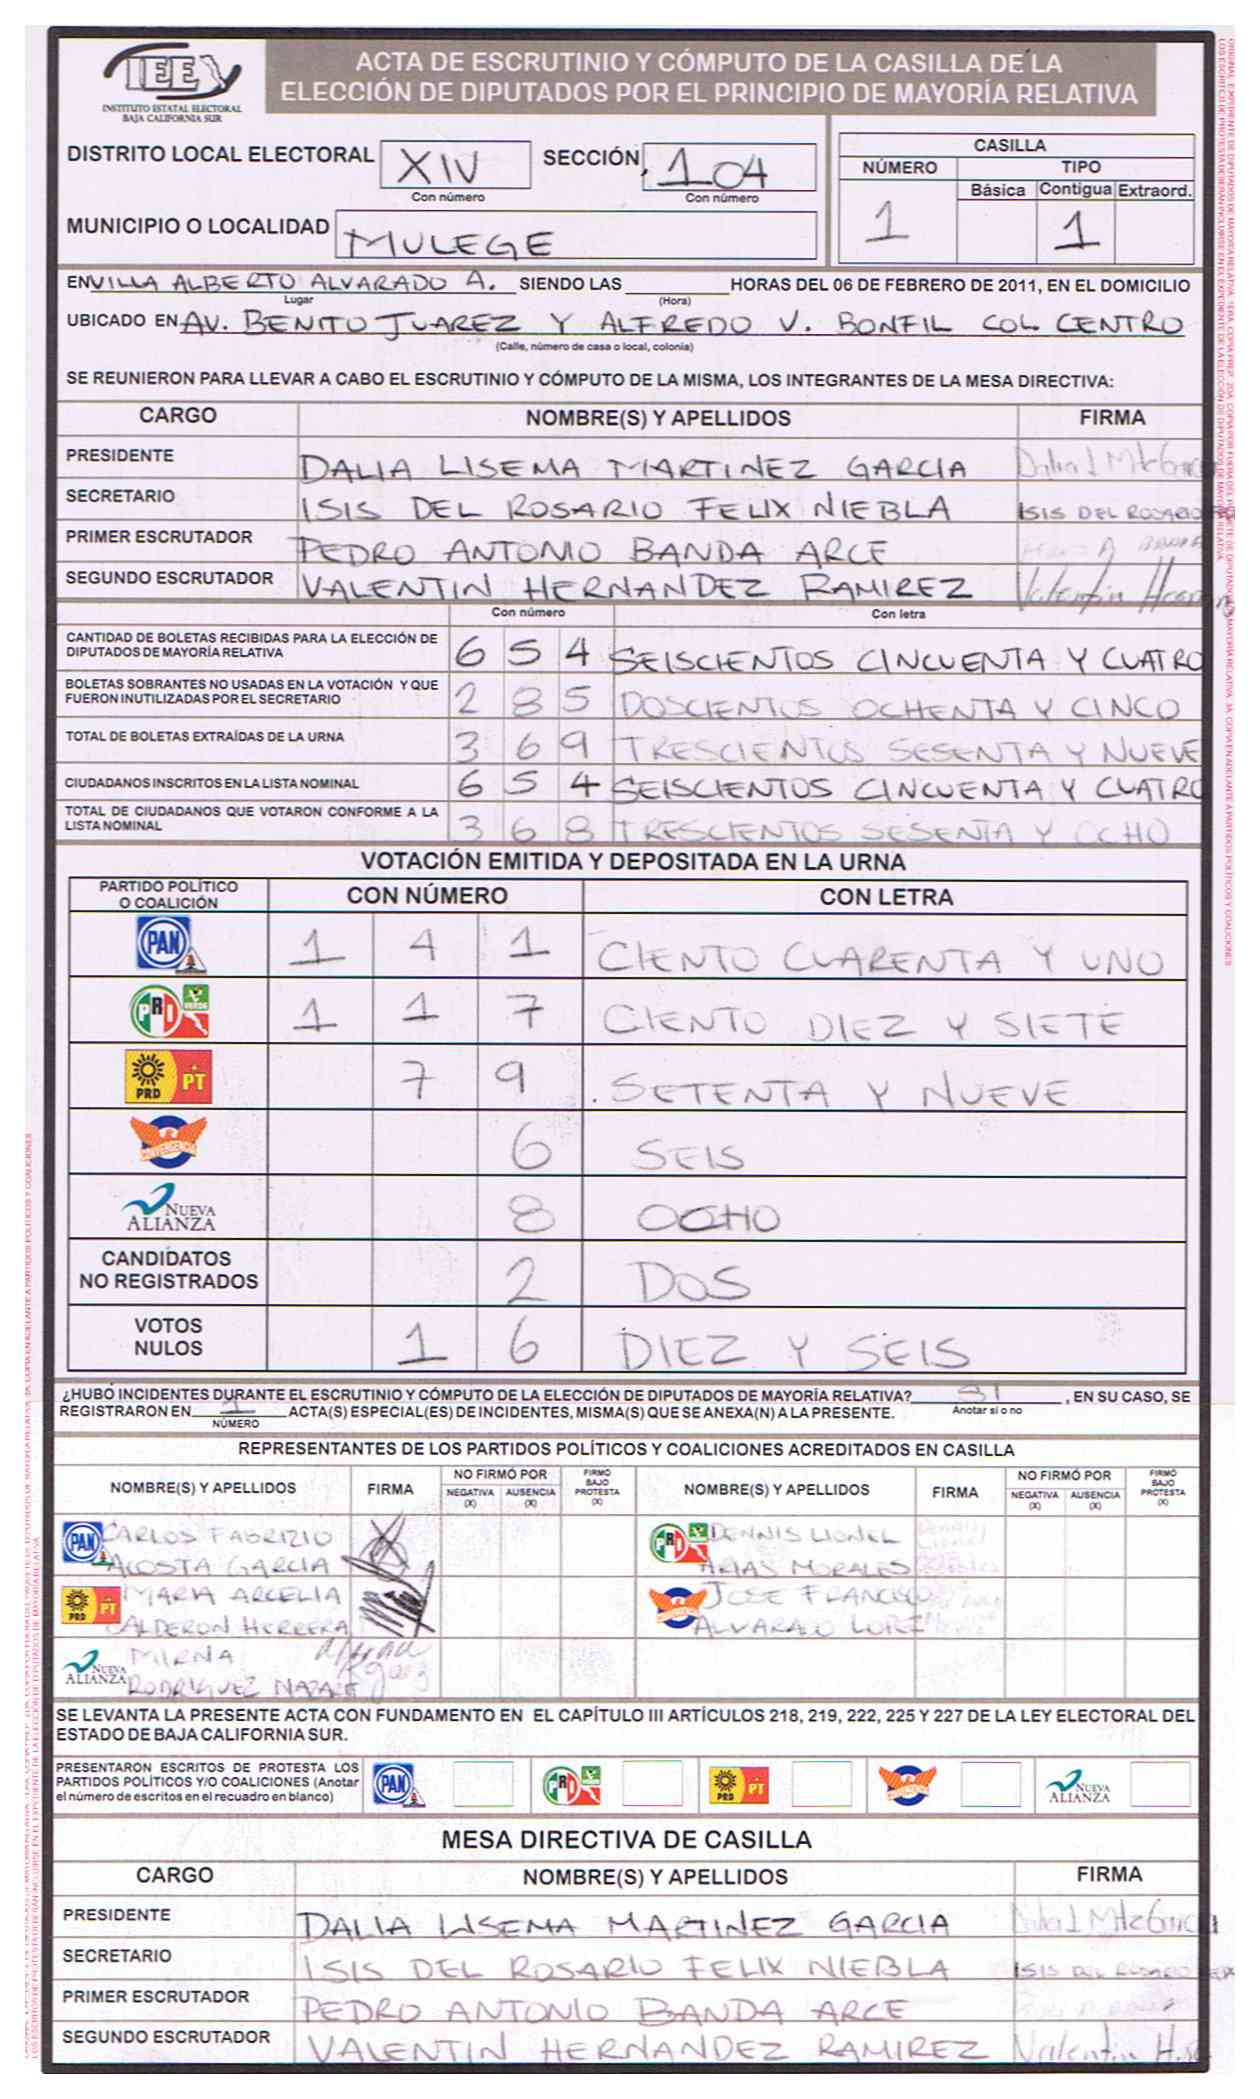 IEE
INSTITUTO ESTATAL ELECTORAL
BAJA CALIFORNIA SUR
ACTA DE ESCRUTINIO Y CÓMPUTO DE LA CASILLA DE LA
ELECCIÓN DE DIPUTADOS POR EL PRINCIPIO DE MAYORÍA RELATIVA
DISTRITO LOCAL ELECTORAL XIV SECCIÓN 104
Con número Con número
MUNICIPIO O LOCALIDAD MULEGE
CASILLA
NÚMERO TIPO
Básica Contigua Extraord.
1 1
EN VILLA ALBERTO ALVARADO A. SIENDO LAS HORAS DEL 06 DE FEBRERO DE 2011, EN EL DOMICILIO
Lugar (Hora)
UBICADO EN AV. BENITO JUAREZ Y ALFREDO V. BONFIL COL. CENTRO
(Calle, número de casa o local, colonia)
SE REUNIERON PARA LLEVAR A CABO EL ESCRUTINIO Y CÓMPUTO DE LA MISMA, LOS INTEGRANTES DE LA MESA DIRECTIVA:
CARGO NOMBRE(S) Y APELLIDOS FIRMA
PRESIDENTE DALIA LISEMA MARTINEZ GARCIA Dalia L Mtz Garcia
SECRETARIO ISIS DEL ROSARIO FELIX NIEBLA ISIS DEL ROSARIO
PRIMER ESCRUTADOR PEDRO ANTONIO BANDA ARCE
SEGUNDO ESCRUTADOR VALENTIN HERNANDEZ RAMIREZ Valentin
Con número Con letra
CANTIDAD DE BOLETAS RECIBIDAS PARA LA ELECCIÓN DE
DIPUTADOS DE MAYORÍA RELATIVA 654 SEISCIENTOS CINCUENTA Y CUATRO
BOLETAS SOBRANTES NO USADAS EN LA VOTACIÓN Y QUE
FUERON INUTILIZADAS POR EL SECRETARIO 285 DOSCIENTOS OCHENTA Y CINCO
TOTAL DE BOLETAS EXTRAÍDAS DE LA URNA 369 TRESCIENTOS SESENTA Y NUEVE
CIUDADANOS INSCRITOS EN LA LISTA NOMINAL 654 SEISCIENTOS CINCUENTA Y CUATRO
TOTAL DE CIUDADANOS QUE VOTARON CONFORME A LA
LISTA NOMINAL 368 TRESCIENTOS SESENTA Y OCHO
VOTACIÓN EMITIDA Y DEPOSITADA EN LA URNA
PARTIDO POLÍTICO
O COALICIÓN CON NÚMERO CON LETRA
PAN 1 4 1 CIENTO CUARENTA Y UNO
PRI VERDE 1 1 7 CIENTO DIEZ Y SIETE
PRD PT 7 9 SETENTA Y NUEVE
CONVERGENCIA 6 SEIS
NUEVA ALIANZA 8 OCHO
CANDIDATOS
NO REGISTRADOS 2 DOS
VOTOS
NULOS 1 6 DIEZ Y SEIS
¿HUBO INCIDENTES DURANTE EL ESCRUTINIO Y CÓMPUTO DE LA ELECCIÓN DE DIPUTADOS DE MAYORÍA RELATIVA? SI , EN SU CASO, SE
Anotar sí o no
REGISTRARON EN 1 ACTA(S) ESPECIAL(ES) DE INCIDENTES, MISMA(S) QUE SE ANEXA(N) A LA PRESENTE.
NÚMERO
REPRESENTANTES DE LOS PARTIDOS POLÍTICOS Y COALICIONES ACREDITADOS EN CASILLA
NOMBRE(S) Y APELLIDOS FIRMA NO FIRMÓ POR NEGATIVA (X) AUSENCIA (X) FIRMÓ BAJO PROTESTA (X) NOMBRE(S) Y APELLIDOS FIRMA NO FIRMÓ POR NEGATIVA (X) AUSENCIA (X) FIRMÓ BAJO PROTESTA (X)
PAN CARLOS FABRIZIO PRI DENNIS LIONEL
ACOSTA GARCIA ARIAS MORALES
PRD PT MARIA ARCELIA JOSE FRANCISCO
CALDERON HERRERA ALVARADO
NUEVA ALIANZA MIRNA
RODRIGUEZ
SE LEVANTA LA PRESENTE ACTA CON FUNDAMENTO EN EL CAPÍTULO III ARTÍCULOS 218, 219, 222, 225 Y 227 DE LA LEY ELECTORAL DEL
ESTADO DE BAJA CALIFORNIA SUR.
PRESENTARON ESCRITOS DE PROTESTA LOS
PARTIDOS POLÍTICOS Y/O COALICIONES (Anotar
el número de escritos en el recuadro en blanco)
PAN PRI PRD PT NUEVA ALIANZA
MESA DIRECTIVA DE CASILLA
CARGO NOMBRE(S) Y APELLIDOS FIRMA
PRESIDENTE DALIA LISEMA MARTINEZ GARCIA Dalia L Mtz Garcia
SECRETARIO ISIS DEL ROSARIO FELIX NIEBLA ISIS DEL ROSARIO
PRIMER ESCRUTADOR PEDRO ANTONIO BANDA ARCE
SEGUNDO ESCRUTADOR VALENTIN HERNANDEZ RAMIREZ Valentin